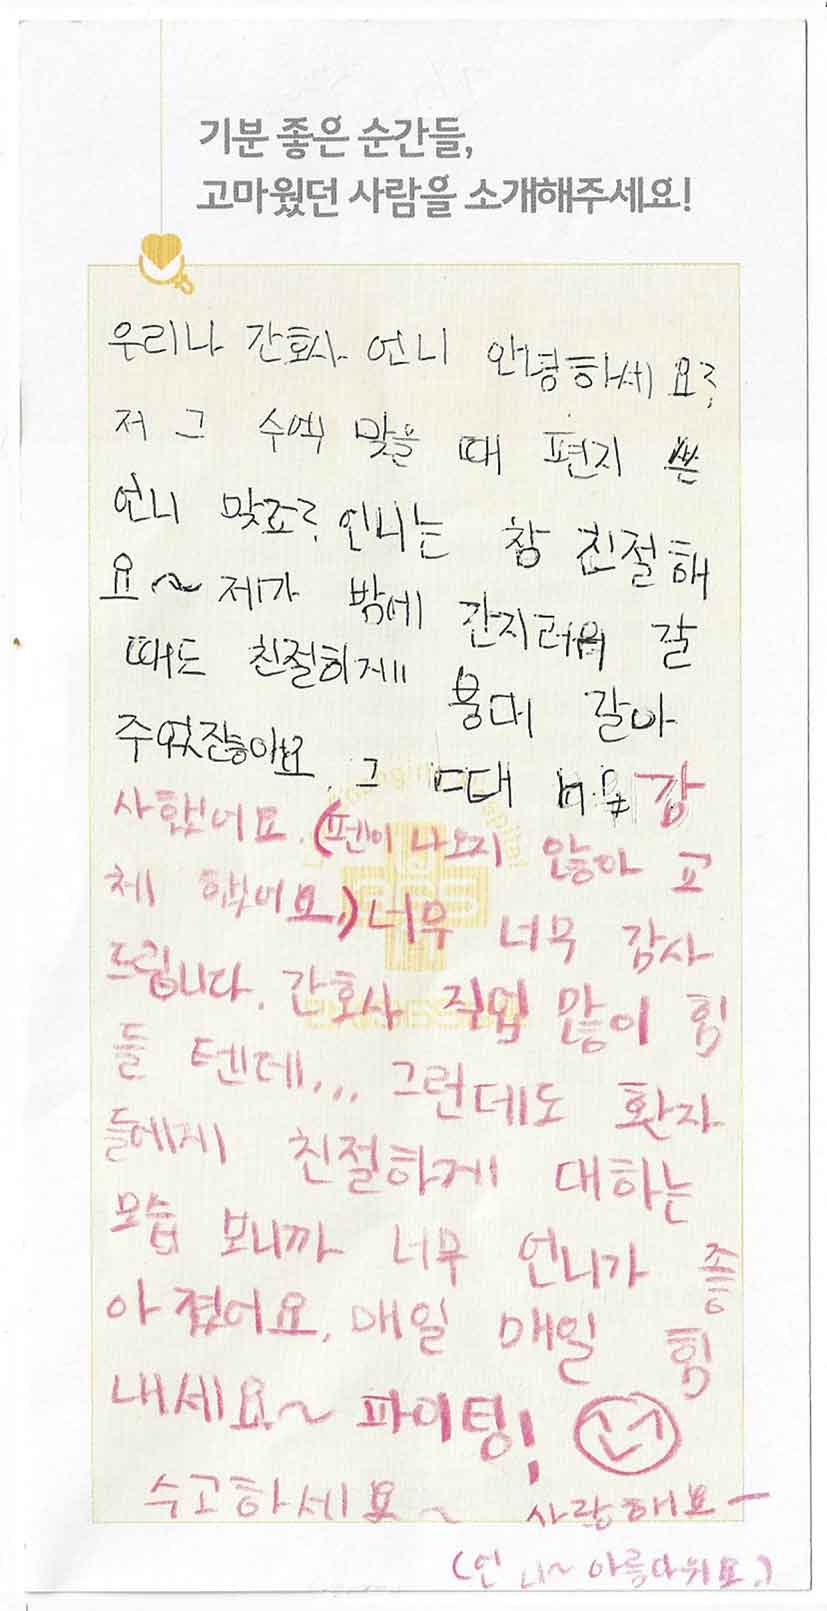 기분 좋은 순간들,
고마웠던 사람을 소개해주세요!
우리나 간호사 언니 안녕하세요?
저 그 수액 맞을 때 편지 쓴
언니 맞죠? 언니는 참 친절해
요~ 제가 밖에 간지러워 갈
때도 친절하게 붕대 갈아
주었잖아요. 그 때 너무 감
사했어요. (펜이 나오지 않아 교
체 했어요.) 너무 너무 감사
드립니다. 간호사 직업 많이 힘
들 텐데... 그런데도 환자
들에게 친절하게 대하는
모습 보니까 너무 언니가 좋
아 졌어요. 매일 매일 힘
내세요~ 파이팅!
수고하세요~ 사랑해요-
(언니~ 아름다워요.)